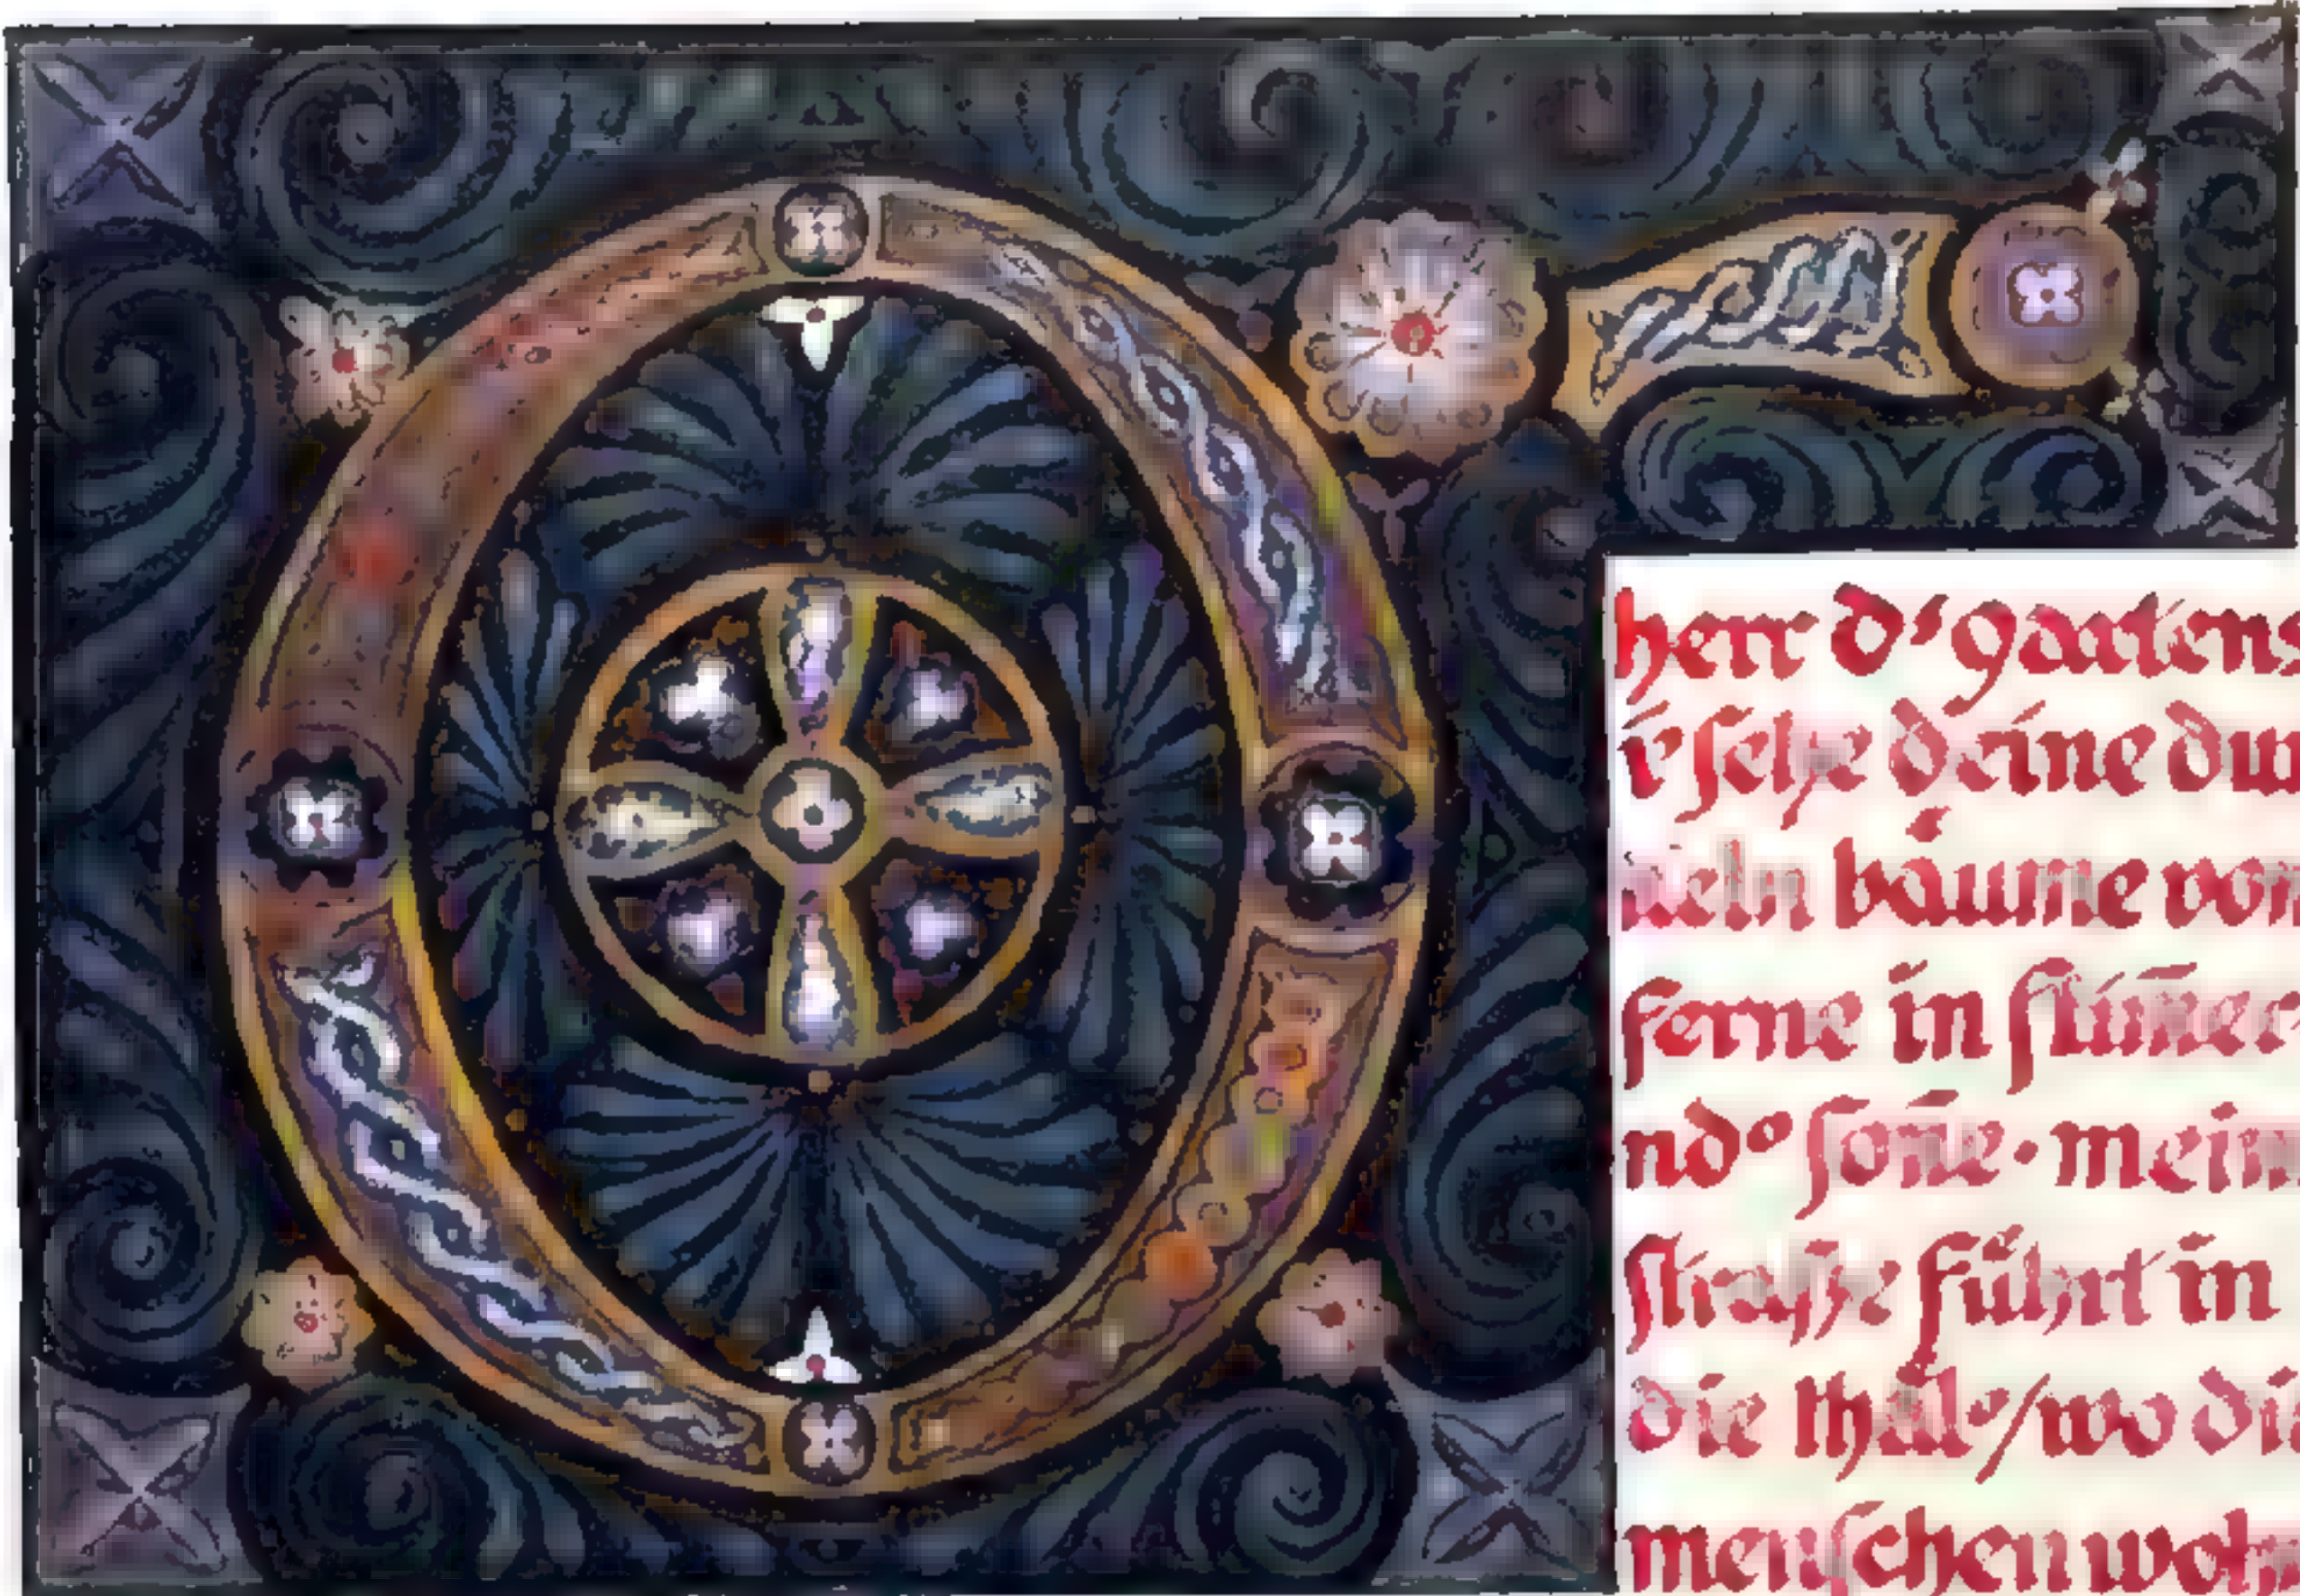 O herr d' gartens
i sehe deine dun
keln bäume von
ferne in flim̄er
nd' son̄e · mein
straße führt in
die thäl'/wo die
menschen wohn